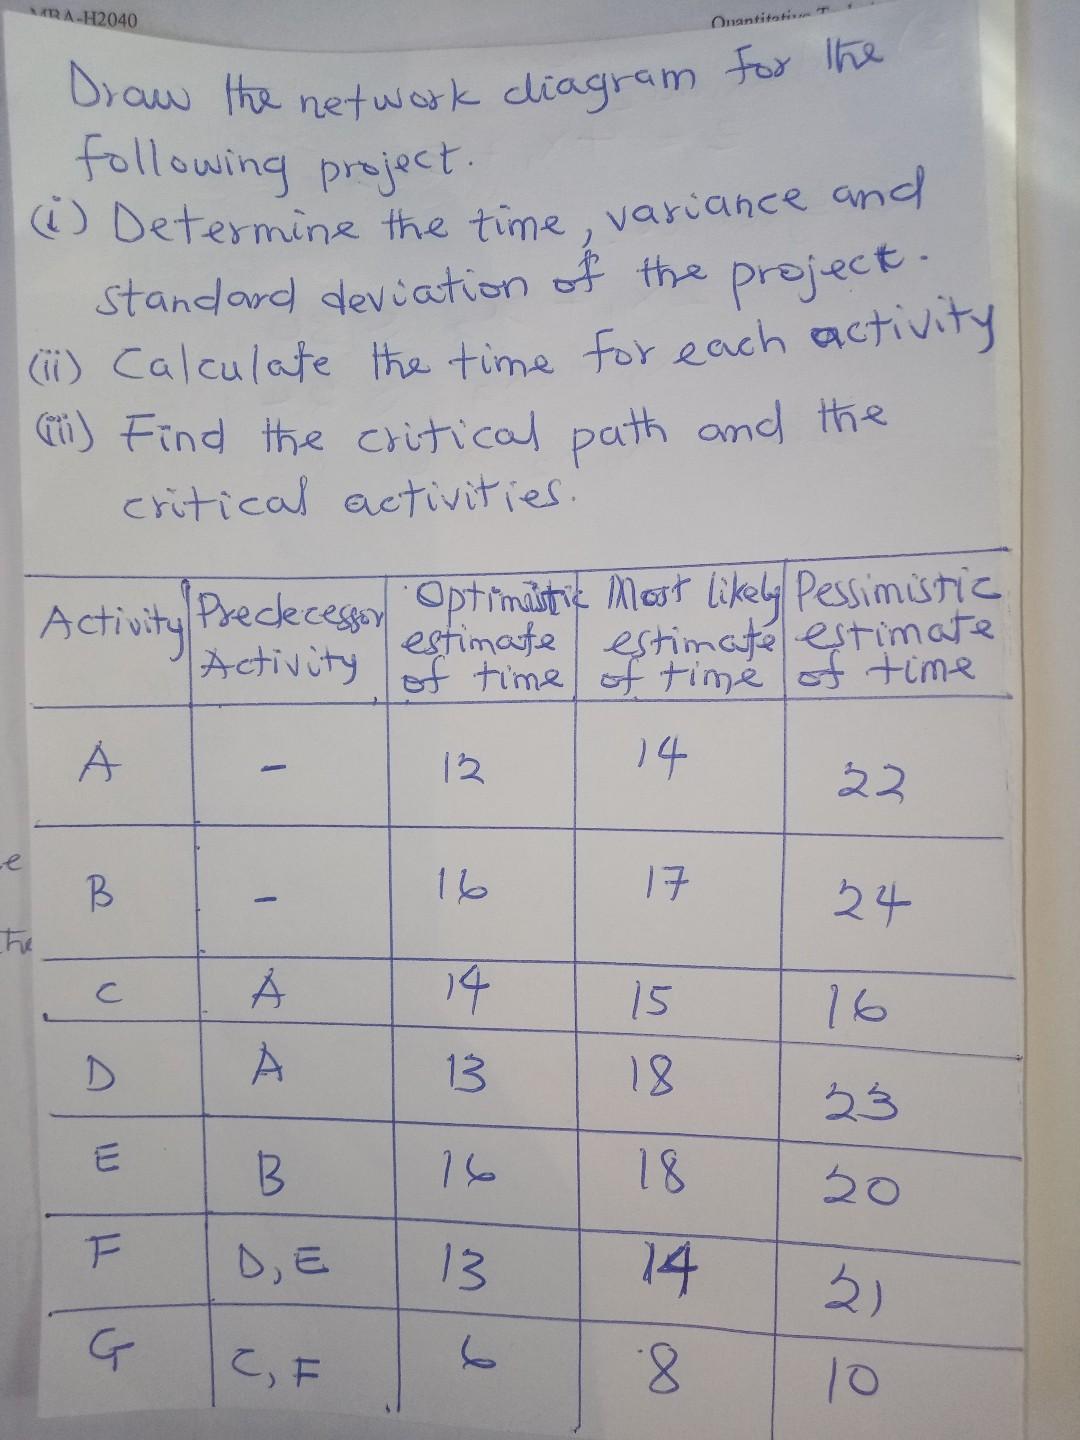 MBA-H2040
Quantitative
Draw the network diagram for the
following project.
(i) Determine the time, variance and
standard deviation of the project.
(ii) Calculate the time for each activity
(iii) Find the critical path and the
critical activities.
Activity Predecessor Activity Optimistic estimate of time Most likely estimate of time Pessimistic estimate of time
A - 12 14 22
B - 16 17 24
C A 14 15 16
D A 13 18 23
E B 16 18 20
F D, E 13 14 21
G C, F 6 8 10